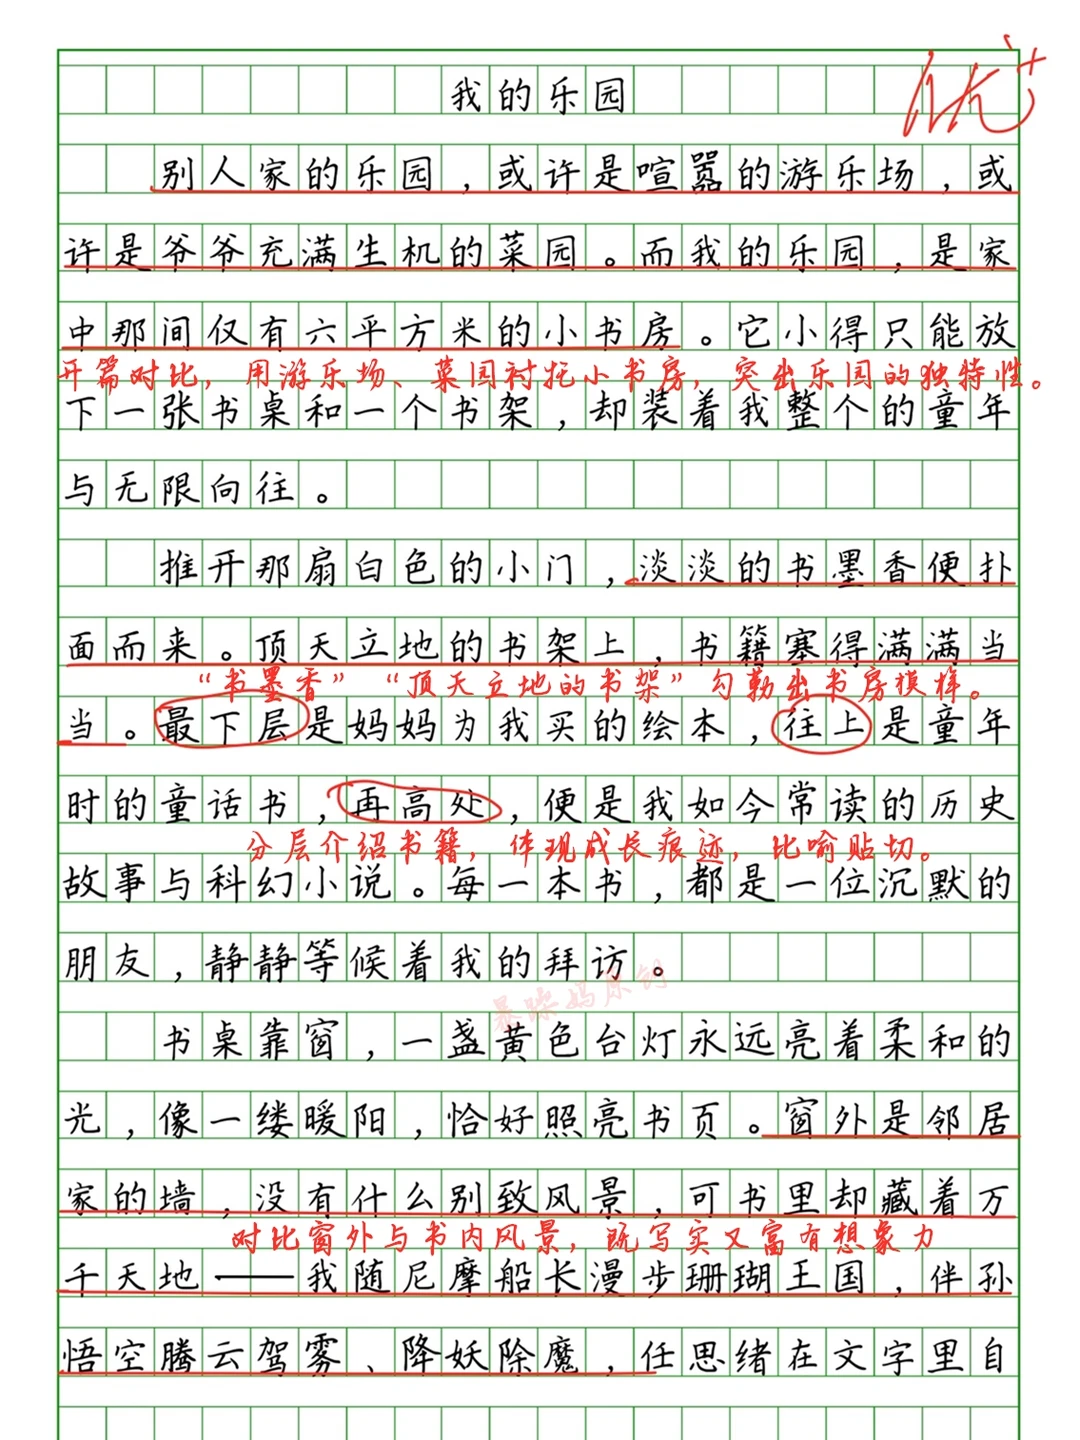 我的乐园
优+
别人家的乐园，或许是喧嚣的游乐场，或
许是爷爷充满生机的菜园。而我的乐园，是家
中那间仅有六平方米的小书房。它小得只能放
开篇对比，用游乐场、菜园衬托小书房，突出乐园的独特性。
下一张书桌和一个书架，却装着我整个的童年
与无限向往。
推开那扇白色的小门，淡淡的书墨香便扑
面而来。顶天立地的书架上，书籍塞得满满当
“书墨香”“顶天立地的书架”勾勒出书房模样。
当。最下层是妈妈为我买的绘本，往上是童年
时的童话书，再高处，便是我如今常读的历史
分层介绍书籍，体现成长痕迹，比喻贴切。
故事与科幻小说。每一本书，都是一位沉默的
朋友，静静等候着我的拜访。
暴躁妈原创
书桌靠窗，一盏黄色台灯永远亮着柔和的
光，像一缕暖阳，恰好照亮书页。窗外是邻居
家的墙，没有什么别致风景，可书里却藏着万
对比窗外与书内风景，既写实又富有想象力
千天地——我随尼摩船长漫步珊瑚王国，伴孙
悟空腾云驾雾、降妖除魔，任思绪在文字里自